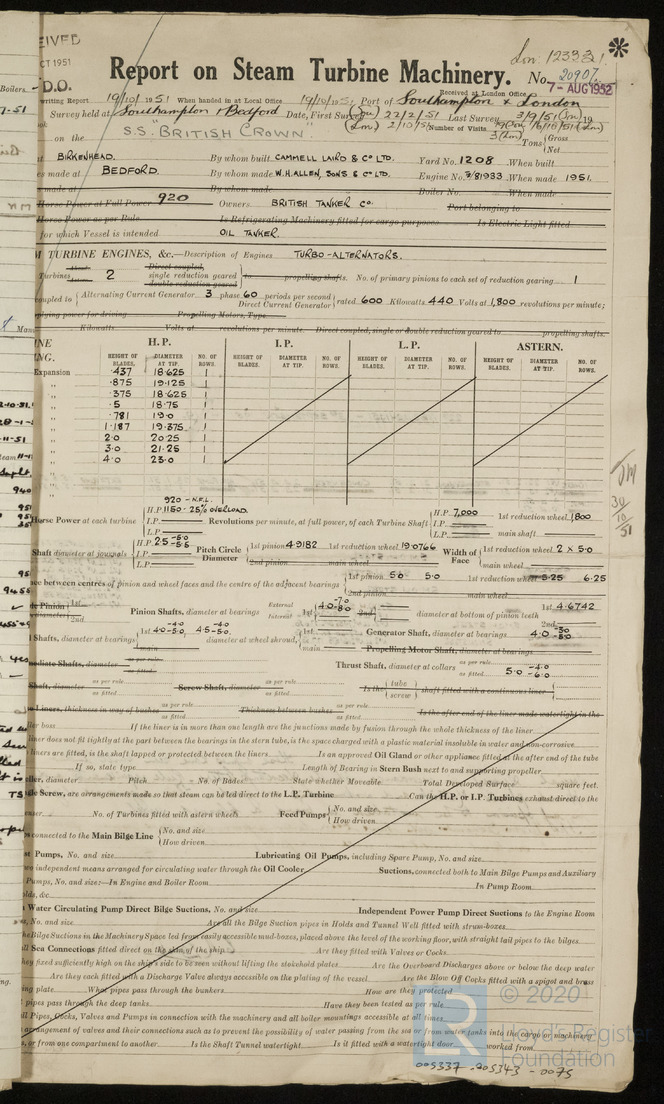 EIVED
CT 1951
D.O.
Lon: 123321
*
Report on Steam Turbine Machinery. No. 20907
7 - AUG 1952
writing Report 19/10/1951 When handed in at Local Office 19/10/1951 Port of Southampton & London
Received at London Office
Survey held at Southampton & Bedford Date, First Survey 22/2/51 Last Survey
(Lon) 2/10/51 Number of Visits
on the S.S. "BRITISH CROWN" Tons Gross Net
at BIRKENHEAD. By whom built CAMMELL LAIRD & CO LTD. Yard No. 1208 When built
es made at BEDFORD. By whom made W.H. ALLEN, SONS & CO LTD. Engine No. 3/81933 When made 1951.
made at By whom made Boiler No. When made
Horse Power at Full Power 920 Owners BRITISH TANKER CO. Port belonging to
Horse Power as per Rule Is Refrigerating Machinery fitted for cargo purposes Is Electric Light fitted
for which Vessel is intended OIL TANKER.
M TURBINE ENGINES, &c.—Description of Engines TURBO-ALTERNATORS.
Turbines 2 Direct coupled, single reduction geared double reduction geared to propelling shafts. No. of primary pinions to each set of reduction gearing 1
coupled to Alternating Current Generator 3 phase 60 periods per second Direct Current Generator rated 600 Kilowatts 440 Volts at 1,800 revolutions per minute;
plying power for driving Propelling Motors, Type
Kilowatts Volts at revolutions per minute. Direct coupled, single or double reduction geared to propelling shafts.
H.P. I.P. L.P. ASTERN.
HEIGHT OF BLADES. DIAMETER AT TIP. NO. OF ROWS. HEIGHT OF BLADES. DIAMETER AT TIP. NO. OF ROWS. HEIGHT OF BLADES. DIAMETER AT TIP. NO. OF ROWS. HEIGHT OF BLADES. DIAMETER AT TIP. NO. OF ROWS.
Expansion .437 18.625 1
" .875 19.125 1
" .375 18.625 1
" .5 18.75 1
" .781 19.0 1
" 1.187 19.375 1
" 2.0 20.25 1
" 3.0 21.25 1
" 4.0 23.0 1
920 - N.F.L.
Horse Power at each turbine H.P. 1150 - 25% OVERLOAD. I.P. L.P. Revolutions per minute, at full power, of each Turbine Shaft H.P. 7,000 I.P. L.P. 1st reduction wheel 1,800 main shaft
Shaft diameter at journals H.P. I.P. L.P. Pitch Circle Diameter 1st pinion 4.9182 1st reduction wheel 19.0766 2nd pinion main wheel Width of Face 1st reduction wheel 2 x 5.0 main wheel
ce between centres of pinion and wheel faces and the centre of the adjacent bearings 1st pinion 5.0 5.0 1st reduction wheel 5.25 6.25
2nd pinion main wheel
Pinion Shafts, diameter at bearings External Internal 1st 2nd diameter at bottom of pinion teeth 1st 4.6742 2nd
Shafts, diameter at bearings 1st main diameter at wheel shroud, 1st main Generator Shaft, diameter at bearings
Propelling Motor Shaft, diameter at bearings
mediate Shafts, diameter as per rule as fitted Thrust Shaft, diameter at collars as per rule as fitted
Shaft, diameter as per rule as fitted Screw Shaft, diameter as per rule as fitted Is the tube screw shaft fitted with a continuous liner
Liners, thickness in way of bushes as per rule as fitted Thickness between bushes as per rule as fitted Is the after end of the liner made watertight in the
ler boss If the liner is in more than one length are the junctions made by fusion through the whole thickness of the liner
liner does not fit tightly at the part between the bearings in the stern tube, is the space charged with a plastic material insoluble in water and non-corrosive
liners are fitted, is the shaft lapped or protected between the liners Is an approved Oil Gland or other appliance fitted at the after end of the tube
If so, state type Length of Bearing in Stern Bush next to and supporting propeller
ller, diameter Pitch No. of Blades State whether Moveable Total Developed Surface square feet.
le Screw, are arrangements made so that steam can be led direct to the L.P. Turbine Can the H.P. or I.P. Turbines exhaust direct to the
No. of Turbines fitted with astern wheels Feed Pumps No. and size How driven
connected to the Main Bilge Line No. and size How driven
st Pumps, No. and size Lubricating Oil Pumps, including Spare Pump, No. and size
wo independent means arranged for circulating water through the Oil Cooler Suctions, connected both to Main Bilge Pumps and Auxiliary
Pumps, No. and size:—In Engine and Boiler Room In Pump Room
lds, &c.
Water Circulating Pump Direct Bilge Suctions, No. and size Independent Power Pump Direct Suctions to the Engine Room
s, No. and size Are all the Bilge Suction pipes in Holds and Tunnel Well fitted with strum-boxes
he Bilge Suctions in the Machinery Space led from easily accessible mud-boxes, placed above the level of the working floor, with straight tail pipes to the bilges
ll Sea Connections fitted direct on the skin of the ship Are they fitted with Valves or Cocks
hey fixed sufficiently high on the ship's side to be seen without lifting the stokehold plates Are the Overboard Discharges above or below the deep water
Are they each fitted with a Discharge Valve always accessible on the plating of the vessel Are the Blow Off Cocks fitted with a spigot and brass
ing plate What pipes pass through the bunkers How are they protected
pipes pass through the deep tanks Have they been tested as per rule
ll Pipes, Cocks, Valves and Pumps in connection with the machinery and all boiler mountings accessible at all times
arrangement of valves and their connections such as to prevent the possibility of water passing from the sea or from water tanks into the cargo or machinery
s, or from one compartment to another Is the Shaft Tunnel watertight Is it fitted with a watertight door worked from
© 2020
Lloyd's Register
Foundation
005337-005343-0075